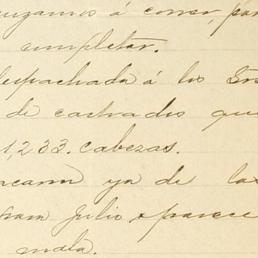 á correr, par
completar.
despachada á los Srs
de castrados que
1,233. cabezas.
ya de las
Julio, aparece
mala.